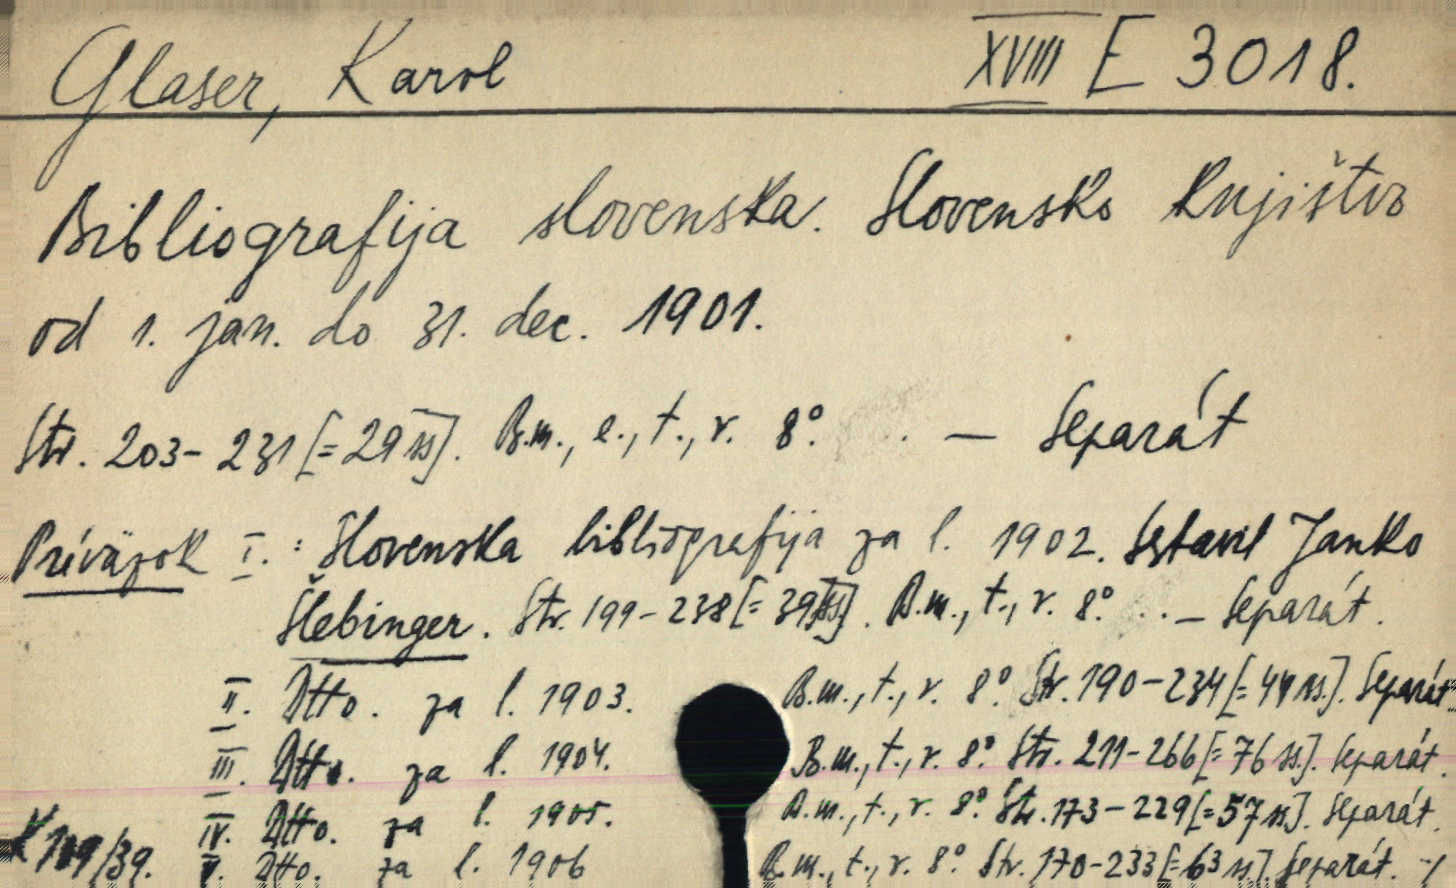 Glaser, Karol XVIII E 3018.
Bibliografija slovenska. Slovensko knjištvo
od 1. jan. do 31. dec. 1901.
Str. 203-231 [=29 ss]. B.m., e., t., r. 8°. .. — Separát
Príväzok I.: Slovenska bibliografija za l. 1902. Sestavil Janko
Šlebinger. Str. 199-238 [=39 ss]. B.m., t., r. 8°. .. — Separát.
II. Dtto. za l. 1903. B.m., t., r. 8° Str. 190-234 [=44 ss.]. Separát.
III. Dtto. za l. 1904. B.m., t., r. 8° Str. 211-266 [=76 ss.]. Separát.
IV. Dtto. za l. 1905. B.m., t., r. 8° Str. 173-229 [=57 ss]. Separát.
V. Dtto. za l. 1906 B.m., t., r. 8° Str. 170-233 [=63 ss]. Separát. -/
/39.